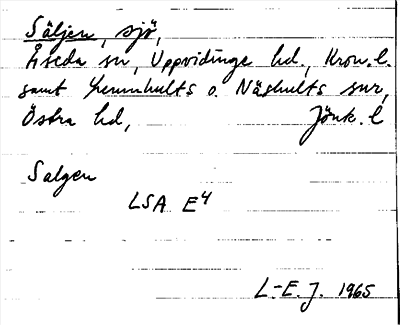 Säljen, sjö,
Åseda sn, Uppvidinge hd., Kron. l.
samt Lemnhults o. Näshults snr,
Östra hd, Jönk. l
Salgen
LSA E4
L.-E. J. 1965